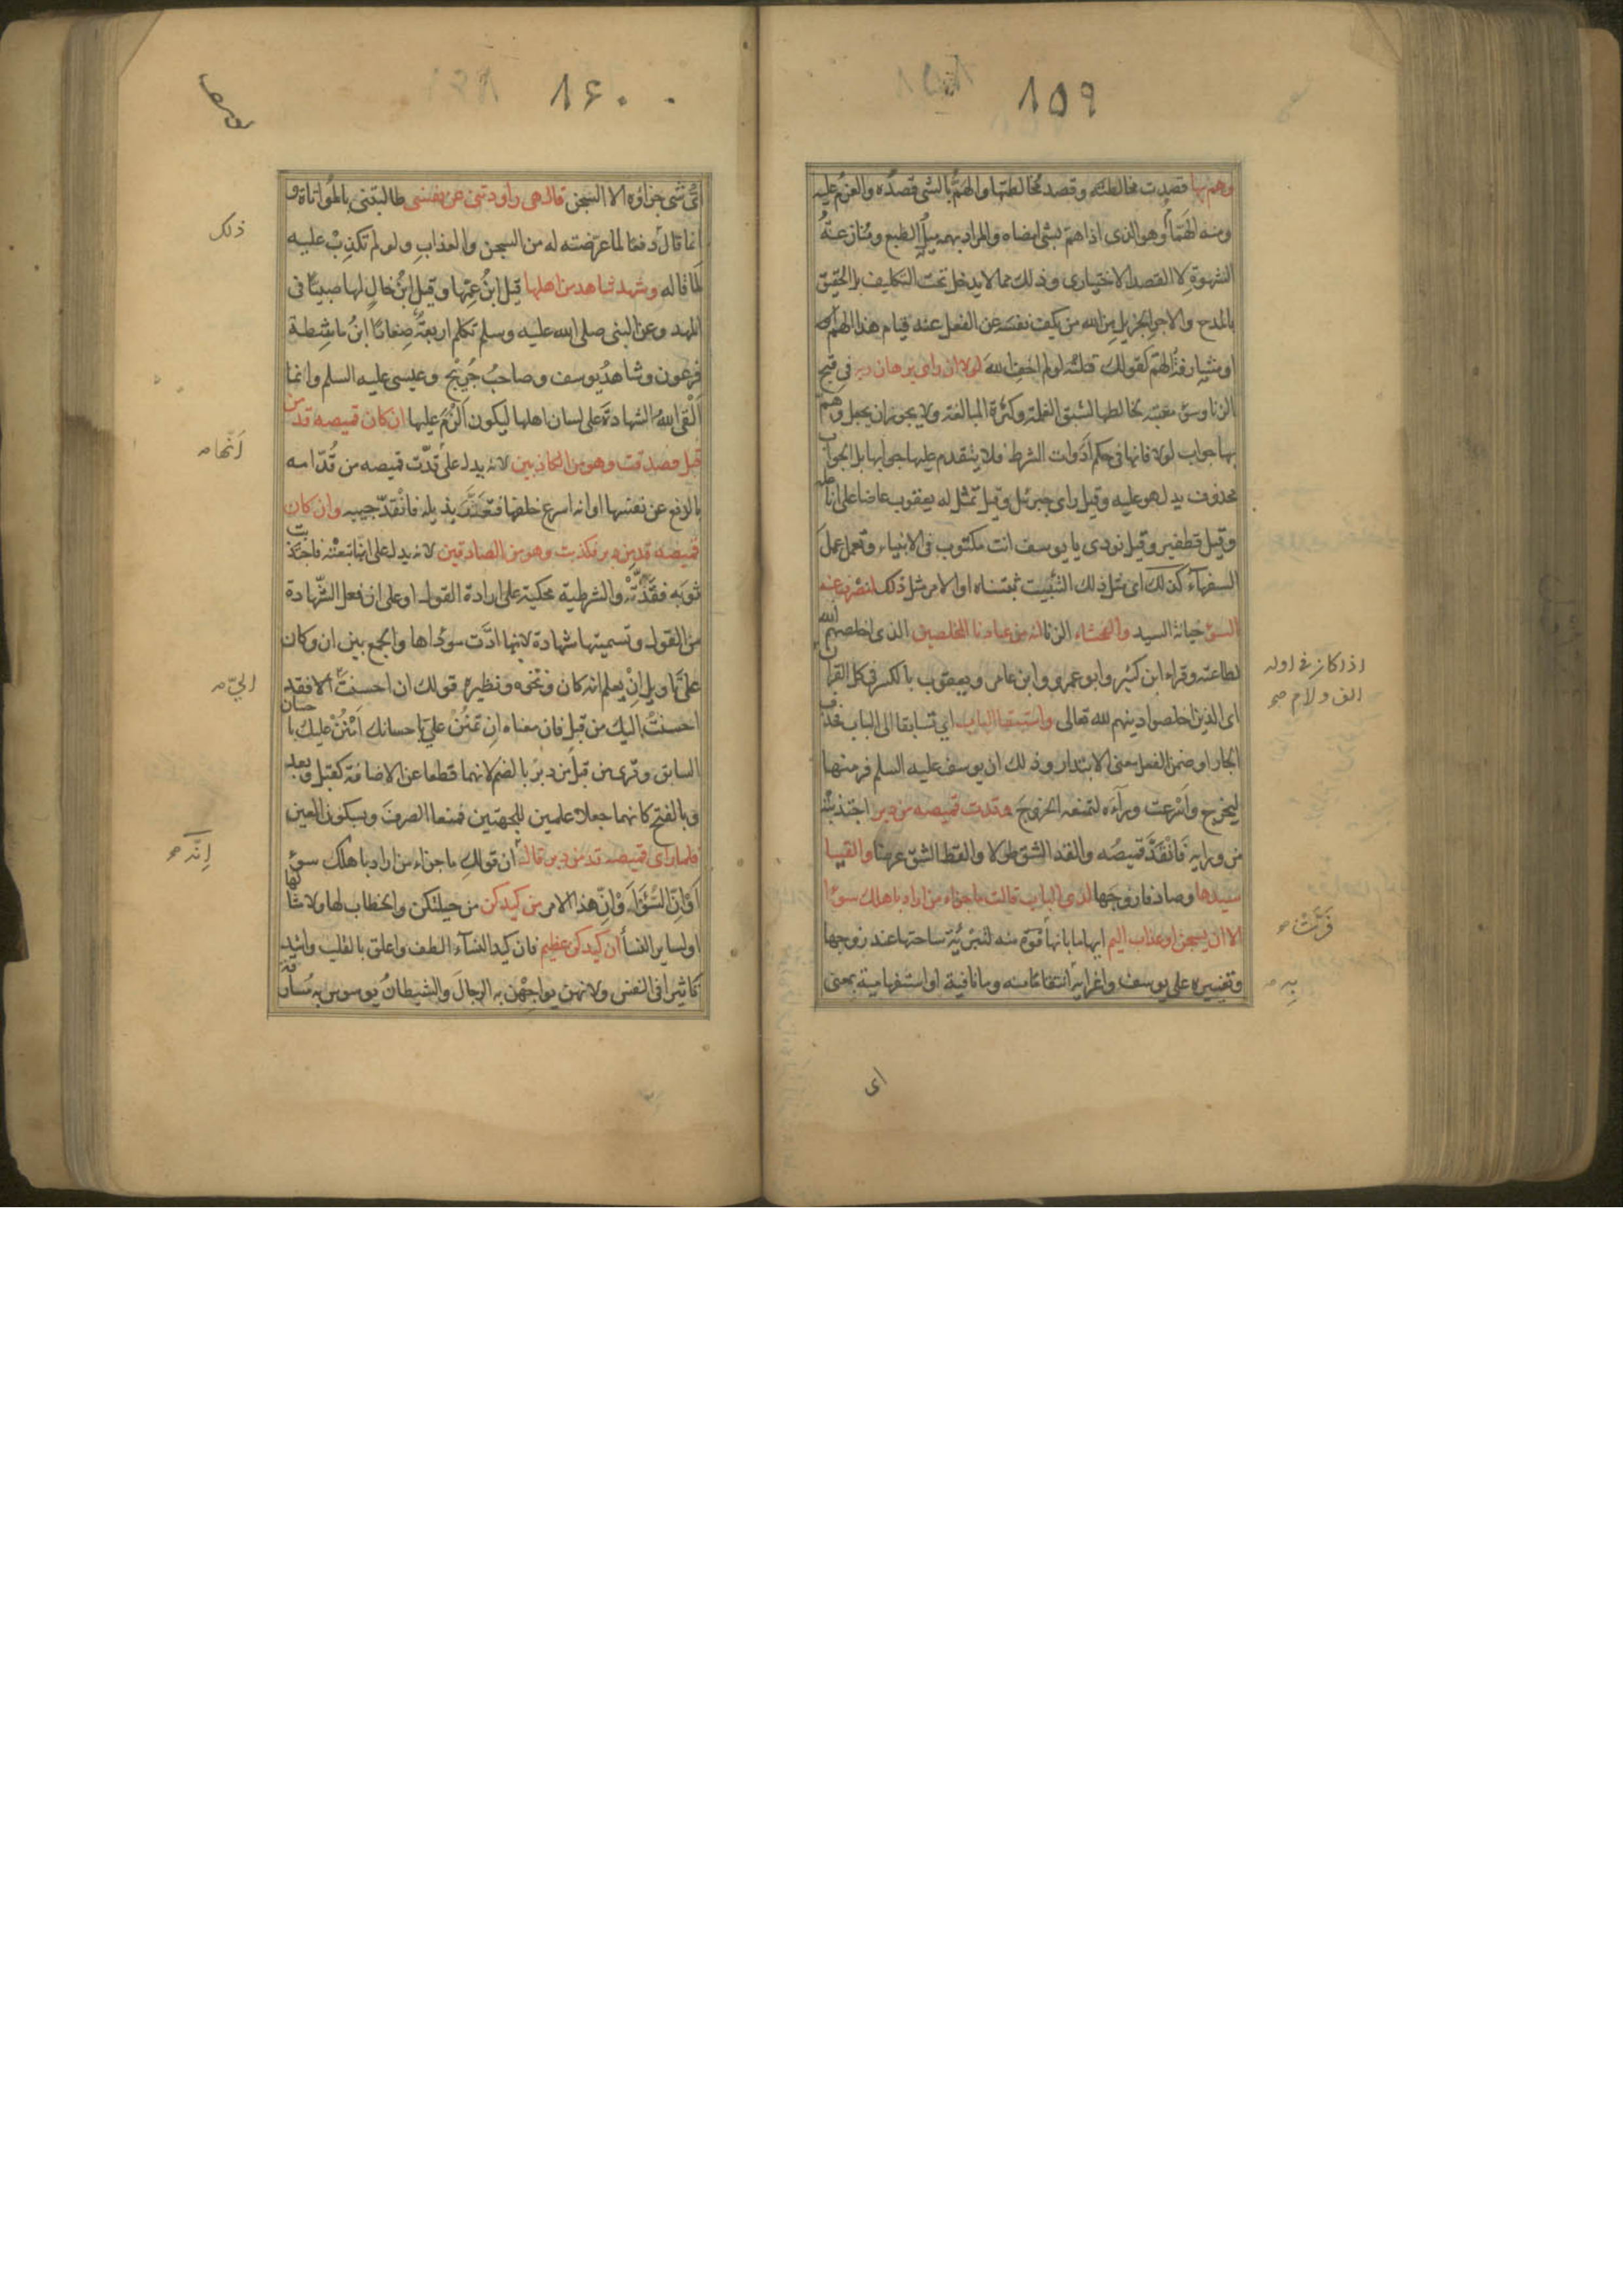 ١٥٩
وهم بها قصدت مخالطته وقصد مخالطتها والهمّ بالشئ قصدُه والعزمُ عليه
ومنه الهَمّامُ وهو الذى اذا همّ بشئ امضاه والمراد بهمه ميلُ الطبع ومنازعةُ
الشهوةِ لا القصد الاختيارى وذلك مما لا يدخل تحت التكليف بل الحقيق
بالمدح والاجر الجزيل من الله من يكف نفسَه عن الفعل عند قيام هذا الهمّ
او مشارفةُ الهمّ كقولك قتلتُه لو لم اخفِ اللهَ لولا ان راى برهان ربه فى قبح
الزنا وسوء مغبته لخالطها لشبق الغلمة وكثرة المبالغة ولا يجوز ان يجعل وهم
بها جواب لولا فانها فى حكم اَدَوات الشرط فلا يتقدم عليها جوابها بل الجواب
محذوف يدل هو عليه وقيل راى جبرئيل وقيل تمثل له يعقوب عاضا على انامله
وقيل قطفير وقيل نودى يا يوسف انت مكتوب فى الانبياء وتعمل عملَ
السفهآء كذلك اى مثل ذلك التثبيت ثبتناه او الامر مثل ذلك لنصرف عنه
السوء خيانة السيد والفحشاء الزنا انه من عبادنا المخلصين الذى اخلصهم الله
لطاعته وقراء ابن كثير وابو عمرو وابن عامر ويعقوب بالكسر فى كل القران
اذا كان فى اوله
الف ولام صح
اى الذين اخلصوا دينهم لله تعالى واستبقا الباب اى تسابقا الى الباب فحذف
الجار او ضمن الفعل معنى الابتدار وذلك ان يوسف عليه السلم فر منها
ليخرج واَسْرعت ورآءه لتمنعه الخروجَ وقدت قميصه من دبر اجتذبتْه
من ورايه فَانْقدَّ قميصُه والقد الشق طولا والقط الشق عرضا والفيا
سيدها وصادفا زوجَها لدى الباب قالت ما جزاء من اراد باهلك سوءا
الا ان يسجن او عذاب اليم ايهاما بانها فرّت منه لتبرئة ساحتها عند زوجها
فرّت صح
وتغييره على يوسف واغرايه انتقاما منه وما نافية او استفهامية بمعنى
بِه صح
اى
١٦٠
اىُّ شئ جزاؤه الا السجن قال هى راودتنى عن نفسى طالبتنى بالمُواتاة و
انما قال دفعا لما عرّضته له من السجن والعذاب ولو لم تكذِبْ عليه
ذلك
لَما قاله وشهد شاهد من اهلها قيل ابنُ عمِّها وقيل ابنُ خالٍ لها صبيًّا فى
المهد وعن النبى صلى الله عليه وسلم تكلم اربعةٌ صِغارًا ابنُ ماشِطة
فرعون وشاهدُ يوسف وصاحبُ جُريْجٍ وعيسى عليه السلم وانما
اَلْقى اللهُ الشهادةَ على لسان اهلها ليكون اَلْزَمَ عليها ان كان قميصه قد من
قبل فصدقت وهو من الكاذبين لانه يدل على قدّت قميصه من قُدّامه
اَنّها صح
بالدفع عن نفسها او انه اسرع خلفها فتعَثَّر بذيله فانْقدّ جيبه وان كان
قميصه قد من دبر فكذبت وهو من الصادقين لانه يدل على انها تبعتْه فاجتذبت
ثوبَه فقَدّتْه والشرطية محكية على ارادة القول او على ان فعل الشّهادة
من القول وتسميتها شهادة لانها ادّت مؤداها والجمع بين ان وكان
على تاويل اِنْ يعلم انه كان ونحوه ونظيره قولك ان احسنتَ الا فقد
الىّ صح
احسنتُ اليك من قبل فان معناه ان تمنُنْ علىّ باحسانك اَمْنُنْ عليك باحسان
السابق وقرى من قبلُ من دبرُ بالضم لانهما قطعا عن الاضافة كقبل وبعد
وبالفتح كانهما جعلا علمين للجهتين فمنعا الصرفَ وبسكون العين
فلما راى قميصه قد من دبر قال ان قولكِ ما جزاء من اراد باهلك سوء
اِنّه صح
اَوْ اِنّ السُّوْءَ اَوْ اِنّ هذا الامر من كيدكن من حيلتكن والخطاب لها ولامثالها
او لساير النسا ان كيدكن عظيم فان كيد النسآء الطف واعلق بالقلب واشد
تاثيرا فى النفس ولانهن يواجِهْن به الرجالَ والشيطانُ يوسوس به مُسارقةً